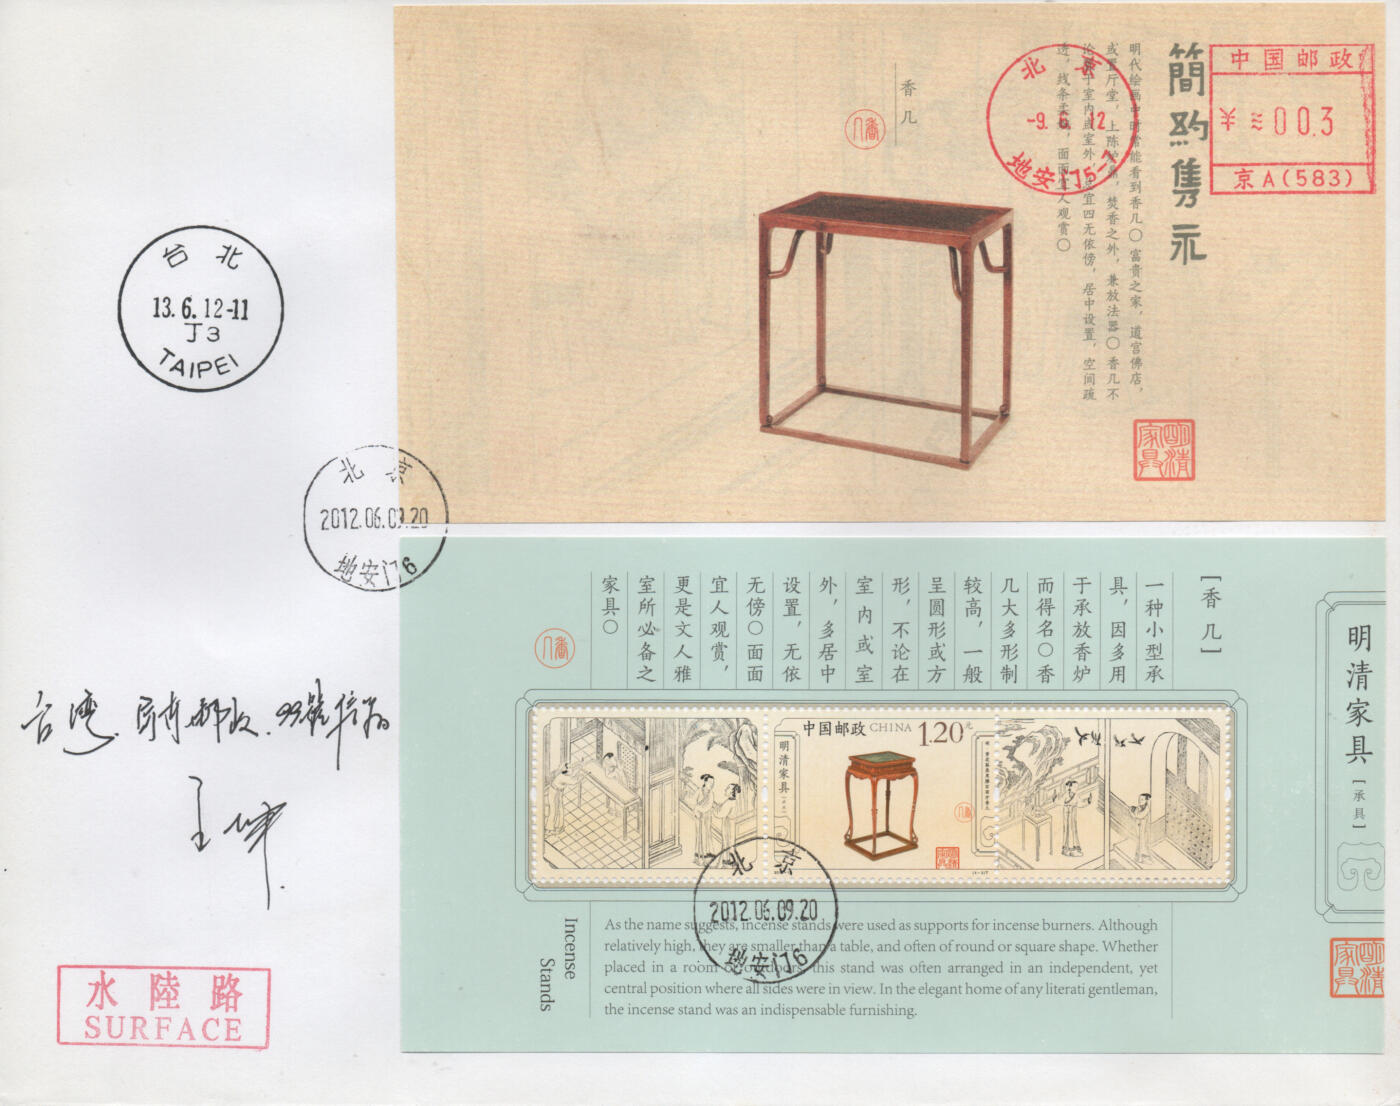 簡約雋永
明代绘画中时常能看到香几〇富贵之家，道宫佛店，
或置厅堂，上陈炉鼎，焚香之外，兼放法器〇香几不
论置于室内或室外，总宜四无依傍，居中设置，空间疏
透，线条柔婉，面面宜人观赏〇
香几
香几
明清家具
北京
-9.6.12
地安门5-7
中国邮政
¥≈00.3
京A(583)
台北
13.6.12-11
J3
TAIPEI
北京
2012.06.09.20
地安门6
[香几]
一种小型承
具，因多用
于承放香炉
而得名〇香
几大多形制
较高，一般
呈圆形或方
形，不论在
室内或室
外，多居中
设置，无依
无傍〇面面
宜人观赏，
更是文人雅
室所必备之
家具〇
香几
明清家具
[承具]
明清家具
中国邮政 CHINA
1.20元
明清家具
北京
2012.06.09.20
地安门6
Incense
Stands
As the name suggests, incense stands were used as supports for incense burners. Although
relatively high, they are smaller than a table, and often of round or square shape. Whether
placed in a room or outdoors, this stand was often arranged in an independent, yet
central position where all sides were in view. In the elegant home of any literati gentleman,
the incense stand was an indispensable furnishing.
台湾
王
水陸路
SURFACE